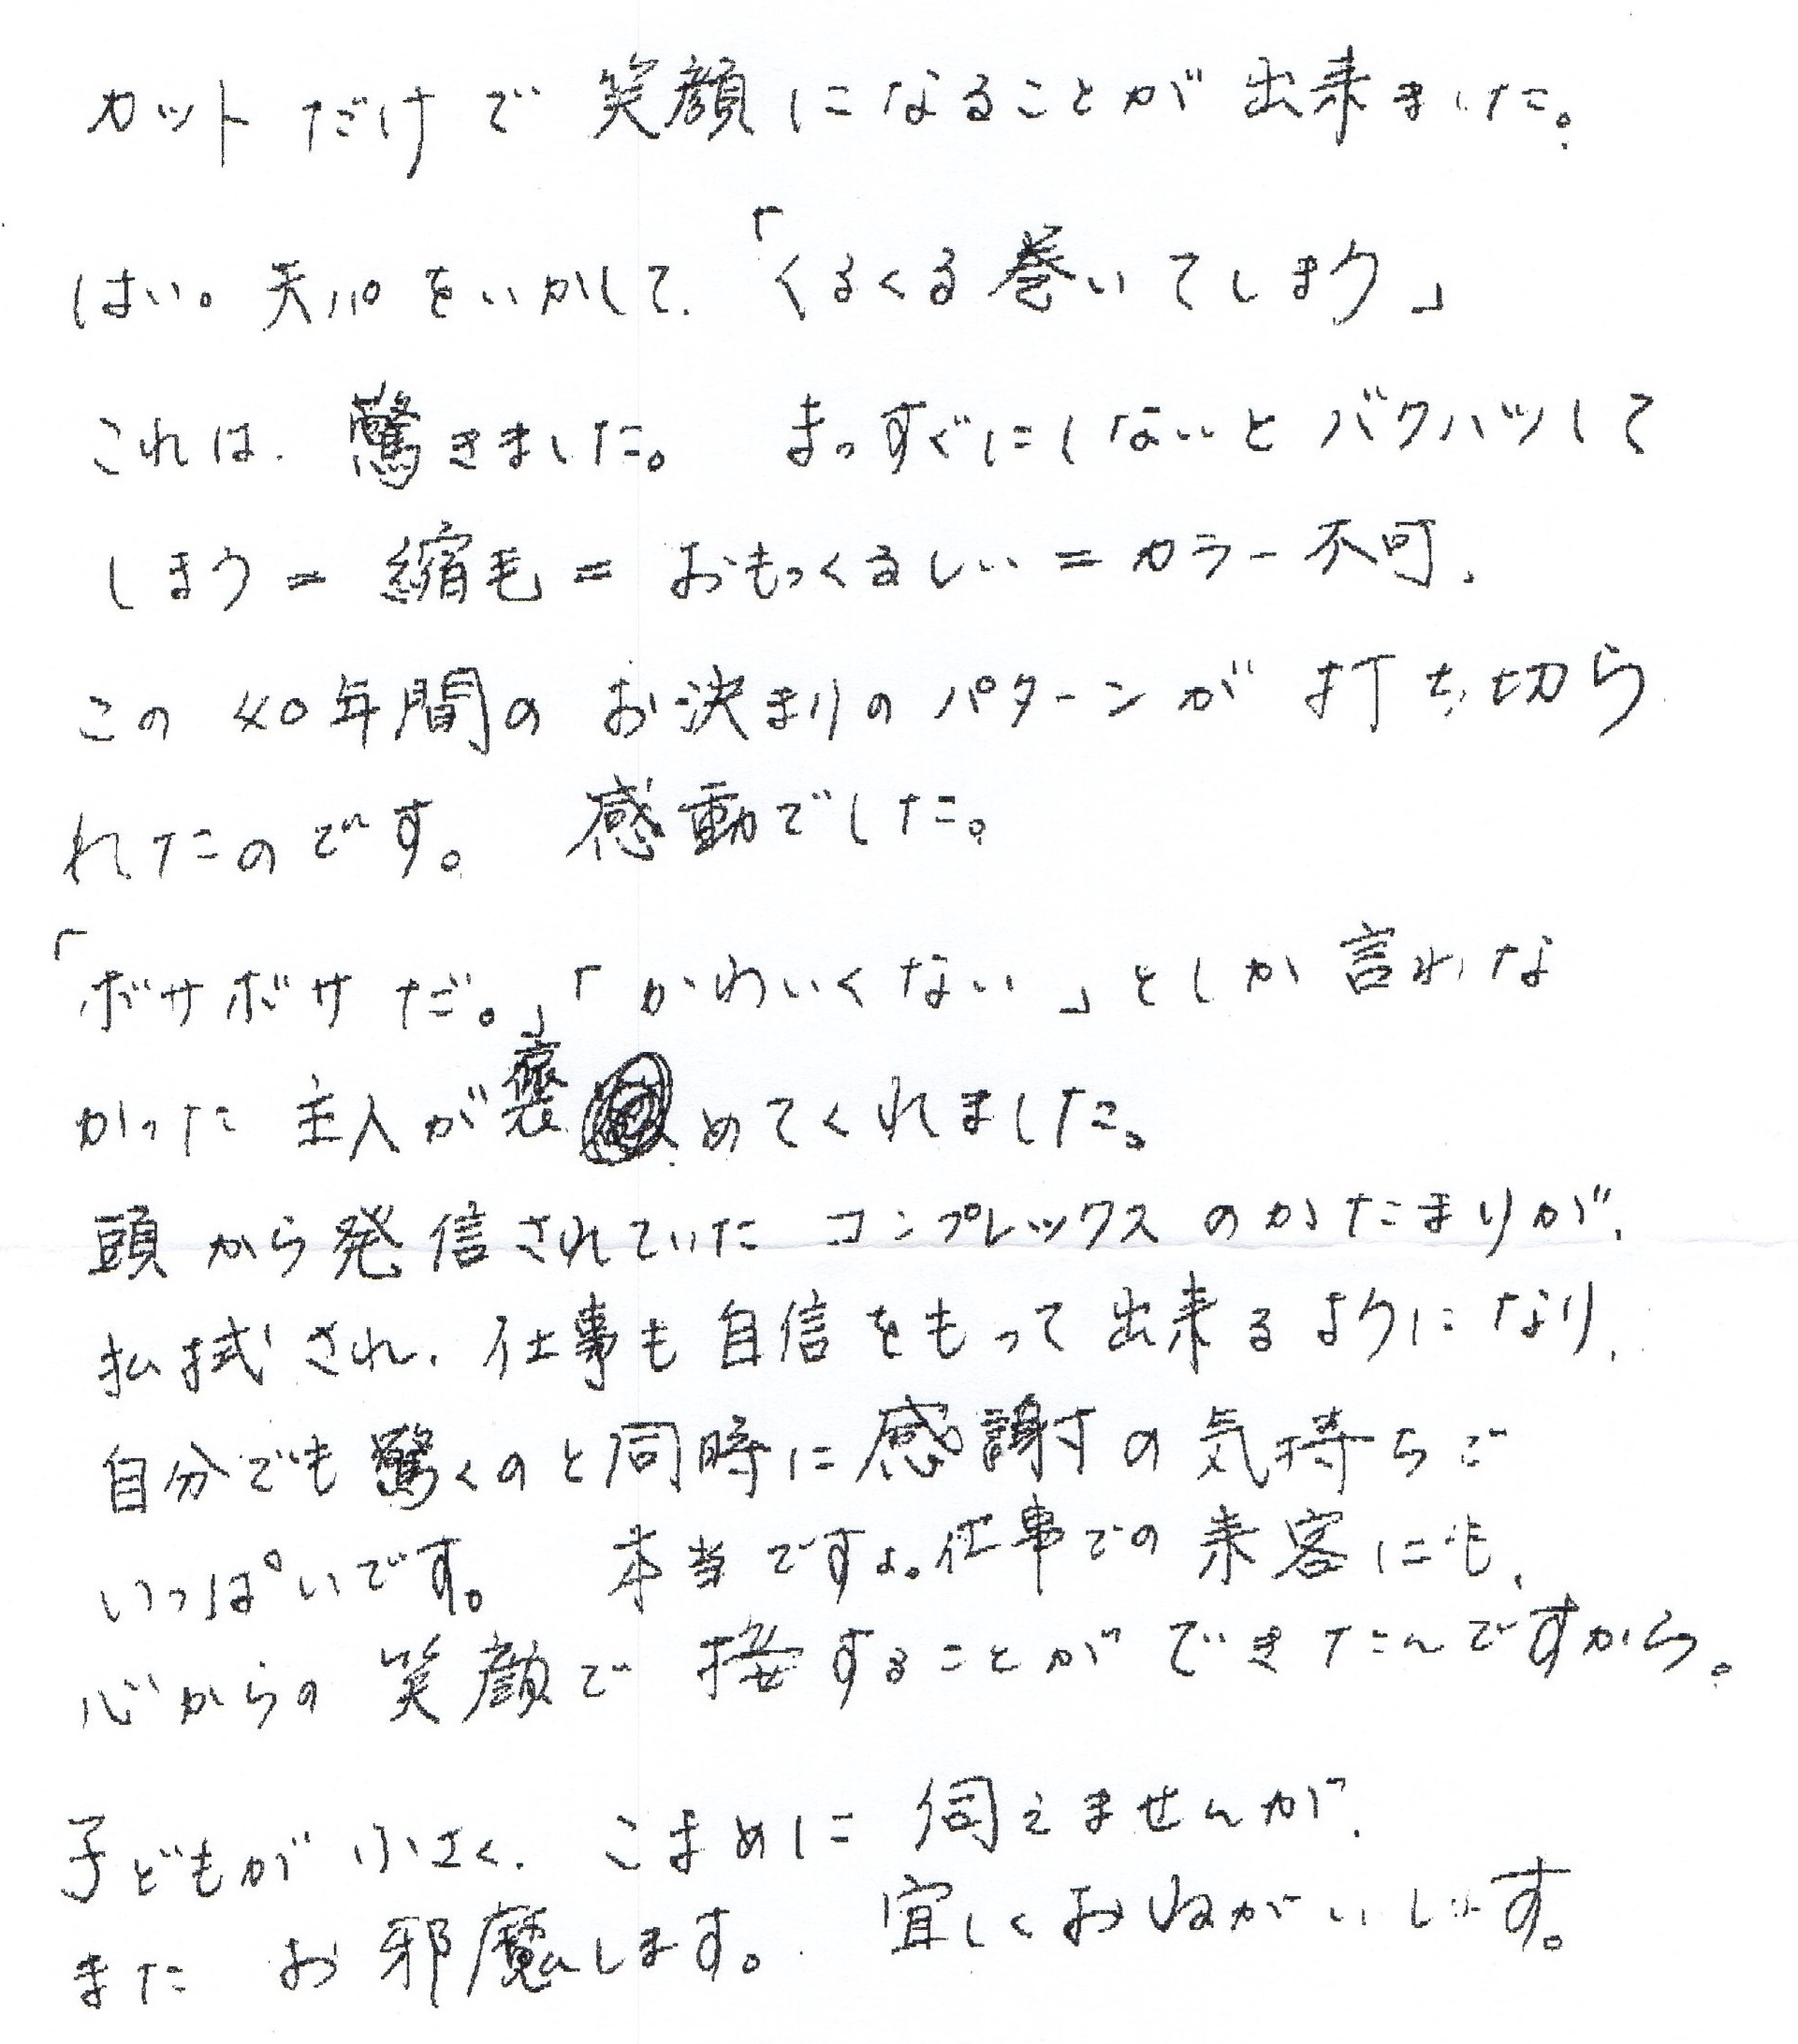 カットだけで笑顔になることが出来ました。
はい。天パをいかして、「くるくる巻いてしまう」
これは、驚きました。 まっすぐにしないとバクハツして
しまう=縮毛=おもっくるしい=カラー不可、
この40年間のお決まりのパターンが打ち切ら
れたのです。 感動でした。
「ボサボサだ。」「かわいくない」としか言わな
かった主人が褒めてくれました。
頭から発信されていたコンプレックスのかたまりが、
払拭され、仕事も自信をもって出来るようになり、
自分でも驚くのと同時に感謝の気持ちで
いっぱいです。 本当ですよ。仕事での来客にも、
心からの笑顔で接することができたんですから。
子どもが小さく、こまめに伺えませんが、
またお邪魔します。 宜しくおねがいします。